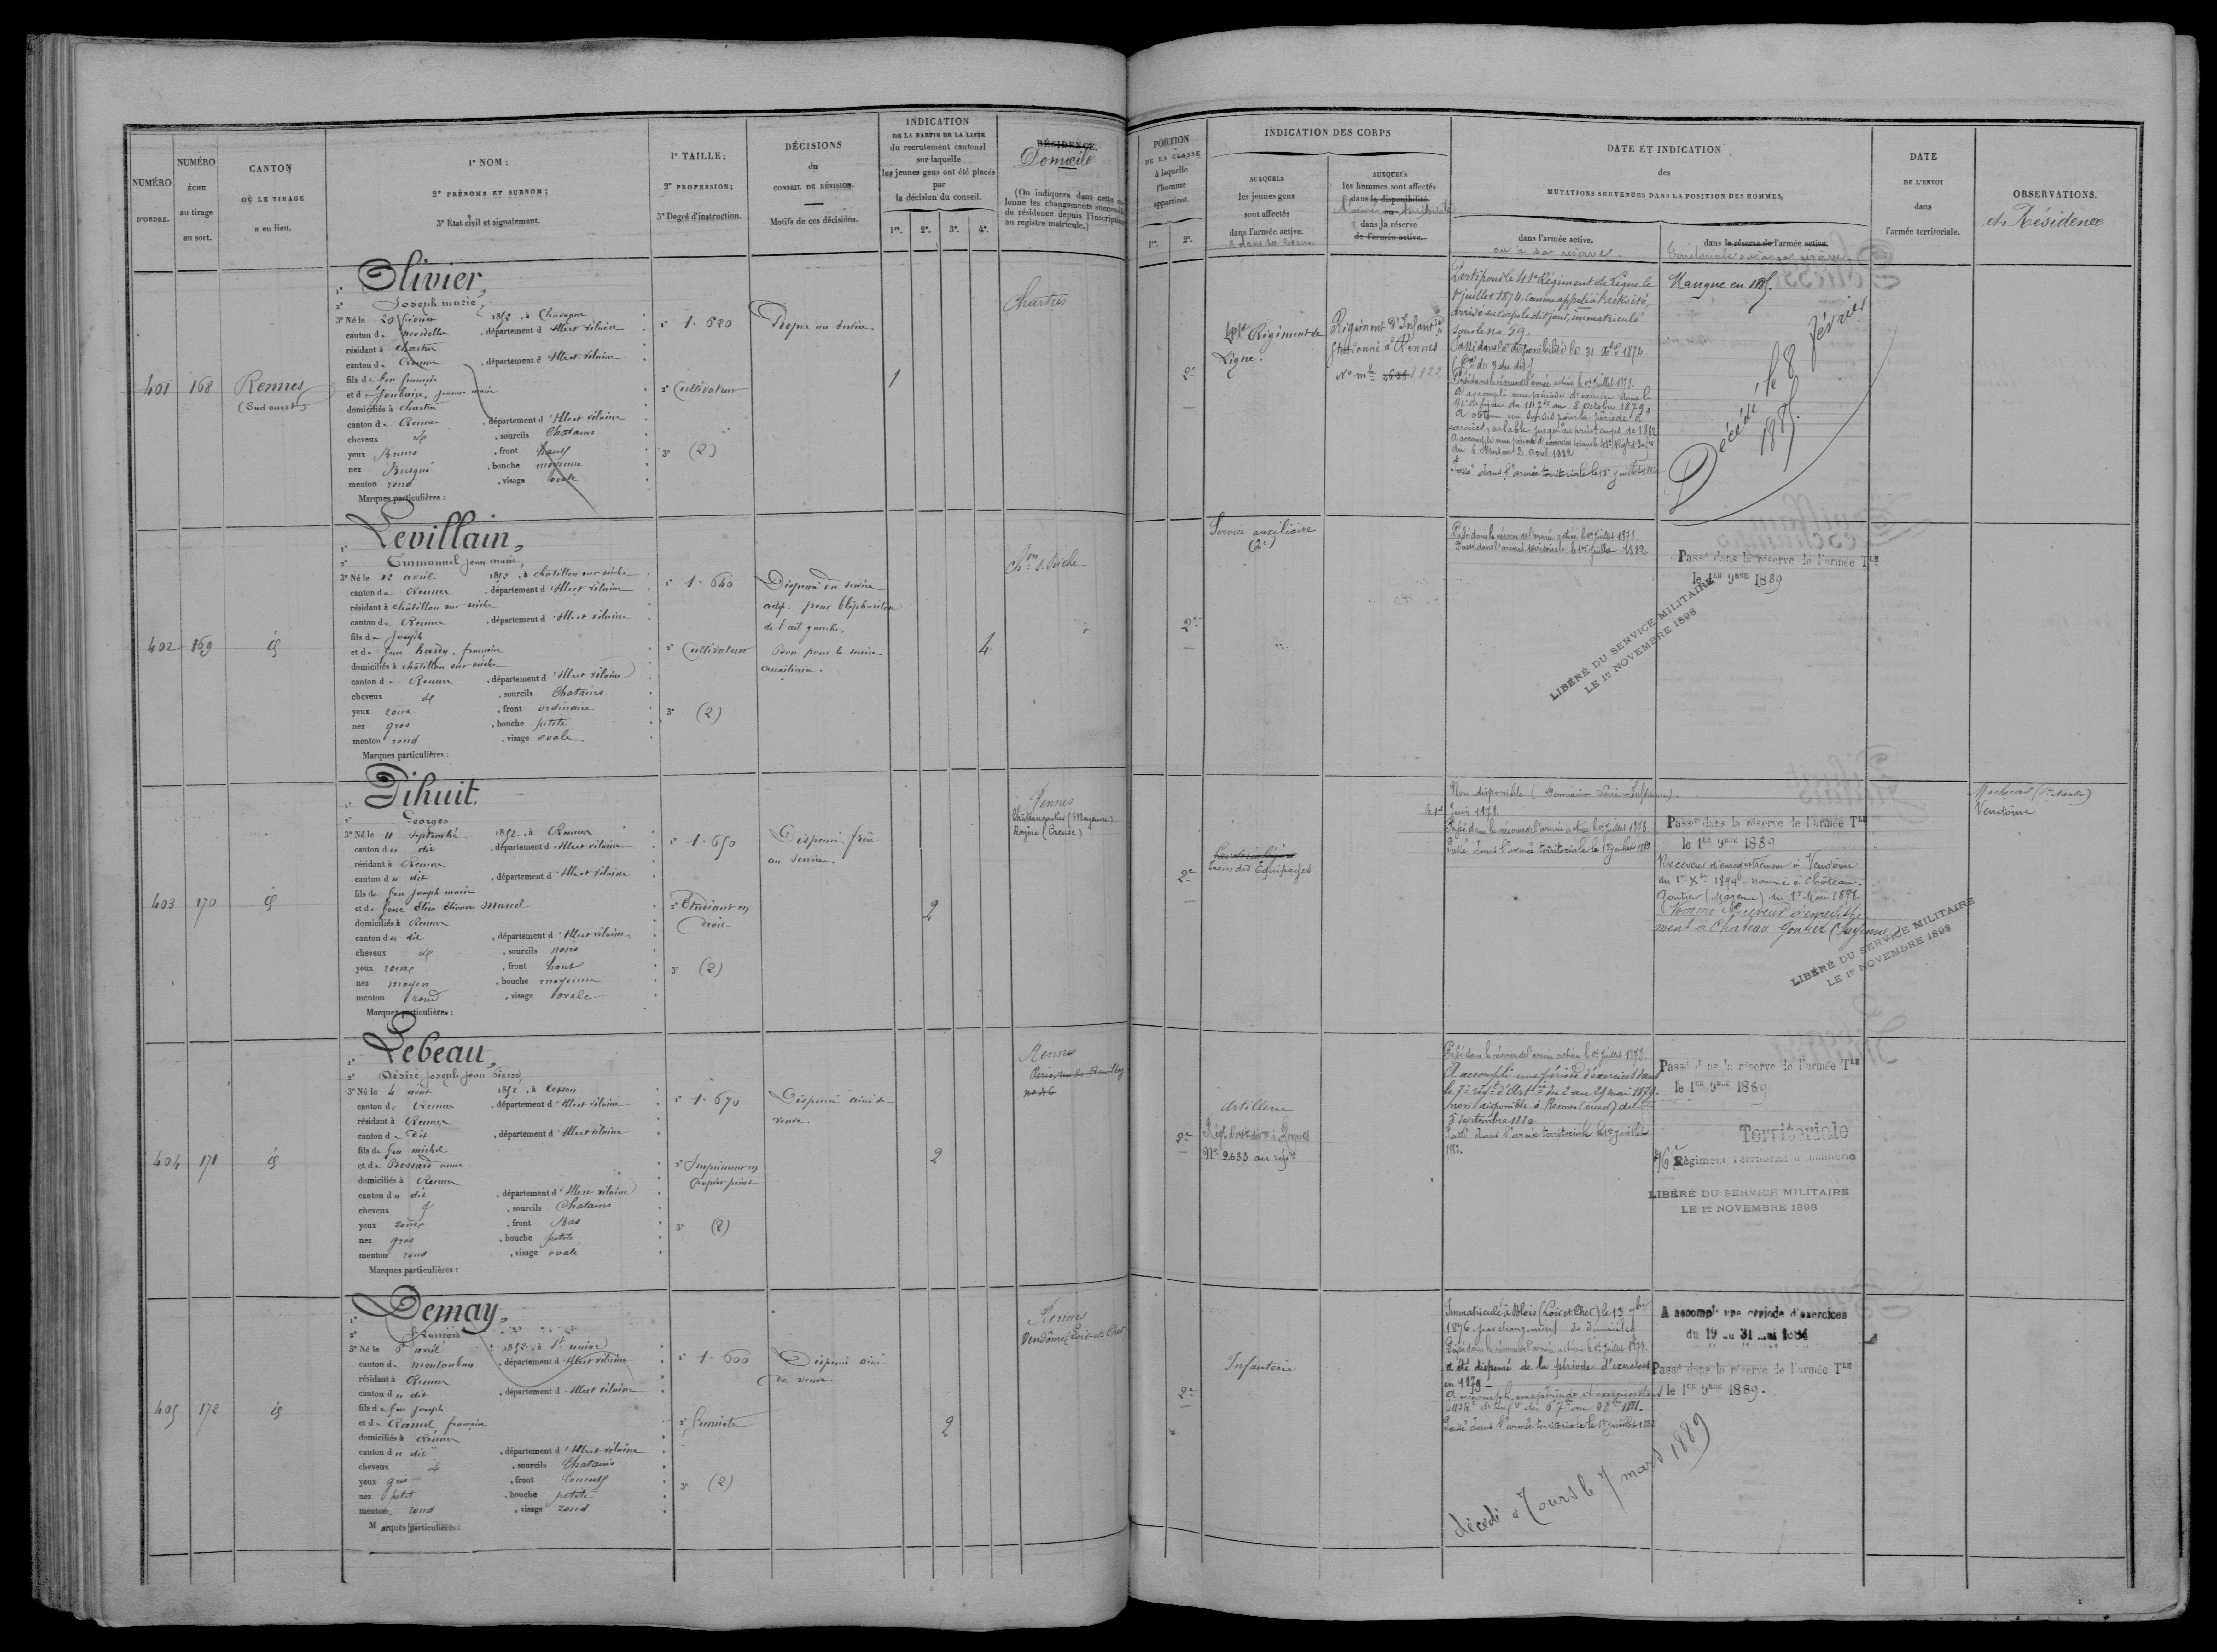 NUMÉRO D'ORDRE.
NUMÉRO ÉCHU au tirage au sort.
CANTON OÙ LE TIRAGE a eu lieu.
1° NOM;
2° PRÉNOMS ET SURNOM;
3° État civil et signalement.
1° TAILLE;
2° PROFESSION;
3° Degré d'instruction.
DÉCISIONS
du
CONSEIL DE RÉVISION.
Motifs de ces décisions.
INDICATION
DE LA PARTIE DE LA LISTE
du recrutement cantonal
sur laquelle
les jeunes gens ont été placés
par
la décision du conseil.
1re. 2e. 3e. 4e.
RÉSIDENCE.
Domicile
(On indiquera dans cette
lonne les changements
de résidence depuis l'inscription
au registre matricule.)
PORTION
DE LA CLASSE
à laquelle
l'homme
appartient.
1re. 2e.
INDICATION DES CORPS
AUXQUELS
les jeunes gens
sont affectés
dans l'armée active.
AUXQUELS
les hommes sont affectés
dans la disponibilité
dans la réserve
de l'armée active.
DATE ET INDICATION
des
MUTATIONS SURVENUES DANS LA POSITION DES HOMMES,
dans l'armée active.
ou à sa réserve.
dans la réserve de l'armée active.
DATE
DE L'ENVOI
dans
l'armée territoriale.
OBSERVATIONS.
et Résidence
401 168 Rennes
(Sud ouest)
1° Olivier,
2° Joseph marie,
3° Né le 20 février 1852, à Chavagne
canton de Mordelles, département d'Ille et vilaine
résidant à chartres
canton de Rennes, département d'Ille et vilaine
fils de feu françois
et de Joubaire,
domiciliés à chartres
canton de Rennes, département d'Ille et vilaine
cheveux, sourcils Chatains
yeux Bruns, front haut
nez Busqué, bouche moyenne
menton rond, visage ovale
Marques particulières:
1° 1.620
2° Cultivateur
3° (2)
Propre au service.
1
Chartres
2e
41e Régiment de
Ligne.
Régiment d'Infant
stationné à Rennes
No mle 1822
Parti pour le 41e Régiment de Ligne le
1er juillet 1874, comme appelé à l'activité,
arrivé au corps le dit jour, immatriculé
sous le no 59.
Passé dans la disponibilité le 31 1874
Passé dans la réserve de l'armée active le 1er Juillet 1878.
A accompli une période d'exercices dans le
41e de ligne du au 8 octobre 1879.
A obtenu un sursis pour la période d'
exercices, valable jusqu'au printemps de 1882
du 6 Mars au 2 avril 1882
Passé dans l'armée territoriale le 1er juillet 1882
Manque en 1885.
Décédé, le 8 février
1885.
402 169 id
1° Levillain,
2° Emmanuel jean marie,
3° Né le 12 avril 1852, à châtillon sur seiche
canton de Rennes, département d'Ille et vilaine
résidant à châtillon sur seiche
canton de Rennes, département d'Ille et vilaine
fils de Joseph
et de feue hardy, françoise
domiciliés à châtillon sur seiche
canton de Rennes, département d'Ille et vilaine
cheveux, sourcils Chatains
yeux roux, front ordinaire
nez gros, bouche petite
menton rond, visage ovale
Marques particulières:
1° 1.640
2° Cultivateur
3° (2)
Dispensé du service
actif. pour
de l'œil gauche.
Bon pour le service
auxiliaire.
4
Chon s. Seiche
2e
Service auxiliaire
(2e)
Passé dans la réserve de l'armée active le 1er Juillet 1878.
Passé dans l'armée territoriale le 1er Juillet 1882
Passé dans la réserve de l'armée TLE
le 1ER 9BRE 1889
LIBÉRÉ DU SERVICE MILITAIRE
LE 1er NOVEMBRE 1898
403 170 id
1° Pihuit.
2° Georges
3° Né le 11 Septembre 1852, à Rennes
canton du dit, département d'Ille et vilaine
résidant à Rennes
canton du dit, département d'Ille et vilaine
fils de feu joseph marie
et de feue Elisa Marcel
domiciliés à Rennes
canton du dit, département d'Ille et vilaine
cheveux, sourcils noirs
yeux roux, front haut
nez moyen, bouche moyenne
menton rond, visage ovale
Marques particulières:
1° 1.650
2° Etudiant en
Droit
3° (2)
Dispensé. frère
au service.
2
Rennes
Châteaugontier (Mayenne)
(Creuse)
2e
Train des Equipages
Non disponible
Juin 1878.
Passé dans la réserve de l'armée active le 1er Juillet 1878
Passé dans l'armée territoriale le 1er juillet 188
Passé dans la réserve de l'armée TLE
le 1ER 9BRE 1889
Receveur d'enregistrement à Vendôme
du 1er Xbre 1894 - nommé à Château-
Gontier (Mayenne) du 1er Mai 1898
Nommé Receveur d'enregistre
ment à Chateau Gontier (Mayenne)
LIBÉRÉ DU SERVICE MILITAIRE
LE 1er NOVEMBRE 1898
Vendôme
404 171 id
1° Lebeau,
2° Désiré joseph jean Pierre,
3° Né le 4 août 1852, à Cesson
canton de Rennes, département d'Ille et vilaine
résidant à Rennes
canton du Dit, département d'Ille et vilaine
fils de feu michel
et de Bossard anne
domiciliés à Rennes
canton du dit, département d'Ille et vilaine
cheveux, sourcils Chatains
yeux roux, front Bas
nez gros, bouche petite
menton rond, visage ovale
Marques particulières:
1° 1.670
2° Imprimeur en
papier peint
3° (2)
Dispensé ainé de
veuve.
2
Rennes
Paris, rue de Reuilly
no 46
2e
Artillerie
Régt d'artrie à Rennes
No 2633 au
Passé dans la réserve de l'armée active le 1er Juillet 1878.
A accompli une période d'exercices dans
le 7e régt d'Artrie du 2 au 29 mai 1879.
non disponible à Rennes (ouest) du
5 Septembre 1880.
Passé dans l'armée territoriale le 1er juillet
188
Passé dans la réserve de l'armée TLE
le 1ER 9BRE 1889
Territoriale
76e Régiment Territorial d'Infanterie
LIBÉRÉ DU SERVICE MILITAIRE
LE 1er NOVEMBRE 1898
405 172 id
1° Demay,
2° François
3° Né le 6 avril 1852, à St uniac
canton de montauban, département d'Ille et vilaine
résidant à Rennes
canton du dit, département d'Ille et vilaine
fils de feu joseph
et de Ramel françoise
domiciliés à Rennes
canton du dit, département d'Ille et vilaine
cheveux, sourcils Chatains
yeux gris, front Couvert
nez petit, bouche petite
menton rond, visage rond
Marques particulières:
1° 1.600
3° (2)
Dispensé ainé
de veuve.
2
Rennes
Vendôme (Loir et Cher
2e
Infanterie
Immatriculé à Blois (Loir et Cher) le 13
1876. par changement de domicile
Passé dans la réserve de l'armée active le 1er Juillet 1878.
a été dispensé de la période d'exercices
en 1879 -
A accompli une période d'exercices dans
Passé dans l'armée territoriale le 1er juillet 188
décédé à Tours le 7 mars 1889
A accompli une période d'exercices
du 19 au 31 Mai 1884
Passé dans la réserve de l'armée TLE
le 1ER 9BRE 1889.